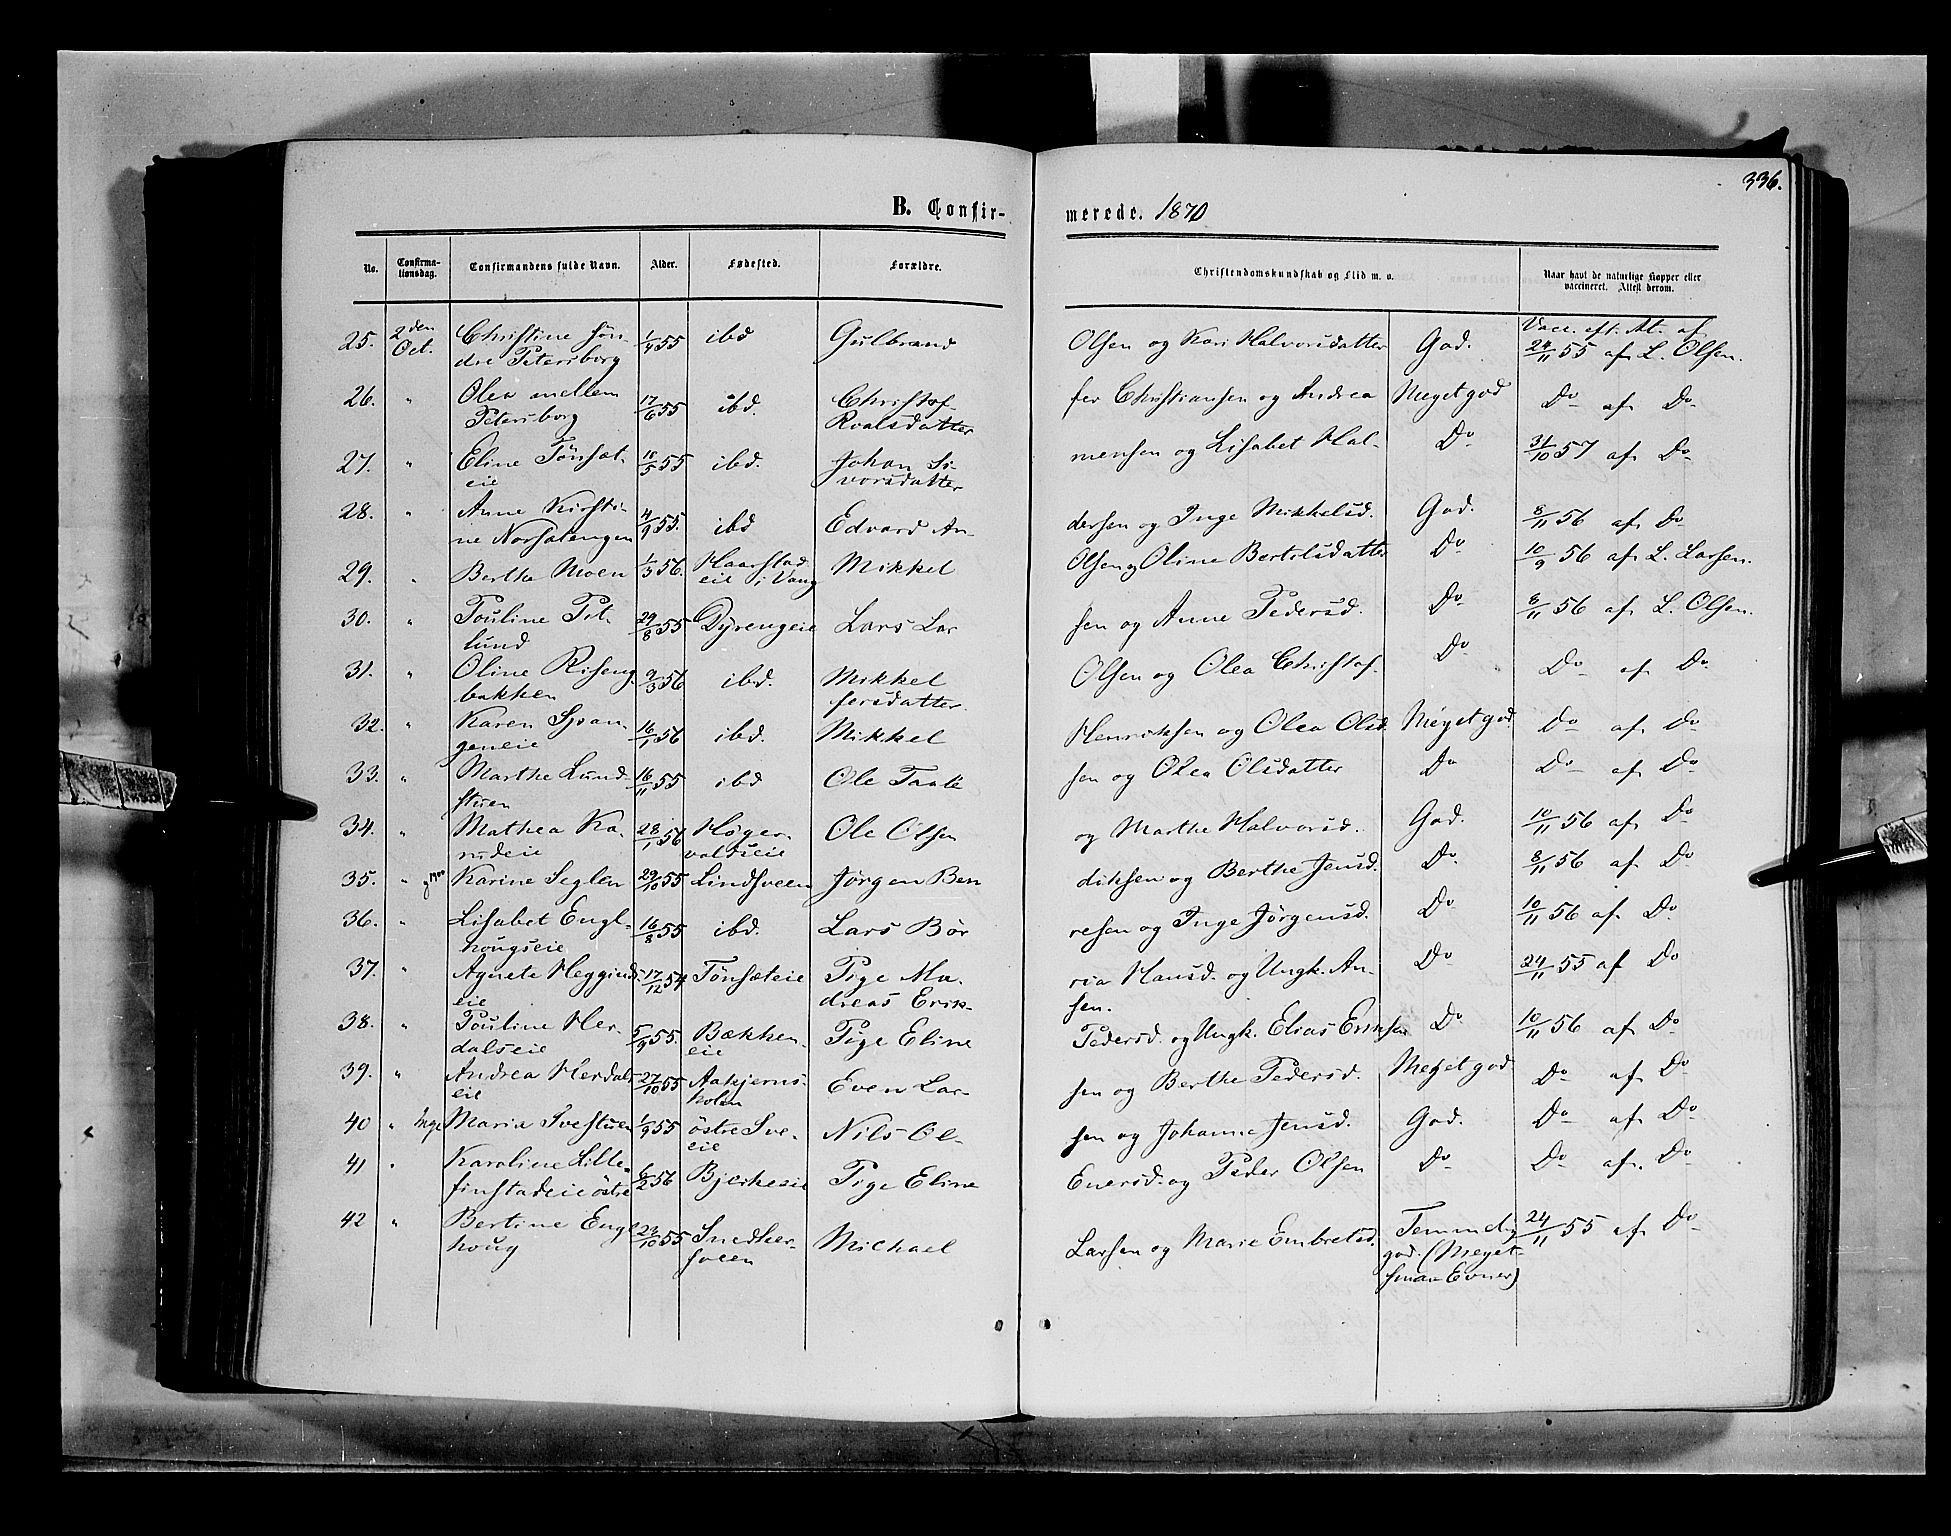 336.
B. Confir-
merede. 1870
No.
Confirma-
tionsdag.
Confirmandens fulde Navn.
Alder.
Fødested.
Forældre.
Christendomskundskab og Flid m. v.
Naar havt de naturlige Kopper eller
vaccineret. Attest derom.
25. 2den Oct. Christine Søn- 1/4 55 ibd Gulbrand Olsen og Kari Halvorsdatter God. Vacc. eft. At. af
dre Petersborg 24/11 55 af L. Olsen.
26. " Olea mellem 17/6 55 ibd. Christof- fer Christiansen og Andrea Meget god Do af Do
Petersborg Roalsdatter
27. " Eline Tønsæt- 10/5 55 ibd. Johan Si- mensen og Lisabet Hal- Do 31/10 57 af Do
eie vorsdatter
28. " Anne Kirsti- 4/9 55. ibd Edvard An- dersen og Inge Mikkelsd. God. 8/11 56 af Do
ne Norsalengen
29. " Berthe Moen 1/3 56. Haarstad- Mikkel Olsen og Oline Bertelsdatter Do 10/9 56 af L. Larsen.
eie i Vang
30. " Pouline Pet- 29/8 55 Dyrengeie Lars Lar sen og Anne Pedersd. Do 8/11 56 af L. Olsen.
lund
31. " Oline Riseng- 9/3 56 ibd. Mikkel Olsen og Olea Christof- Do Do af Do
bakken fersdatter.
32. " Karen Span- 16/1 56 ibd. Mikkel Henriksen og Olea Olsd. Meget god Do af Do
geneie
33. " Marthe Lund- 16/11 55 ibd Ole Taale sen og Olea Olsdatter Do Do af Do
stuen
34. " Mathea Ka- 28/1 56 Høger- Ole Olsen og Marthe Halvorsd. God. 10/11 56 af Do
rudeie valdseie
35. " Karine Seglen 29/10 55 Lindsveen Jørgen Ben diksen og Berthe Jensd. Do 8/11 56 af Do
36. " Lisabet Engl- 16/8 55 ibd. Lars Bør resen og Inge Jørgensd. Do 10/11 56 af Do
hougseie
37. " Agnete Heggiuds- 17/12 54 Tønsæteie Pige Ma- ria Hansd. og Ungk. An- Do 24/11 55 af Do
eie dreas Erik- sen.
38. " Pouline Her- 5/9 55. Bækken- Pige Eline Pedersd. og Ungk. Elias Eriksen Do 10/11 56 af Do
dalseie eie
39. " Andrea Herdals- 27/10 55 Aakjerns- Even Lar- sen og Berthe Pedersd. Meget god Do af Do
eie holen
40 " Inge Maria Svestuen 1/9 55 østre Sve- Nils Ol- sen og Johanne Jensd. God. Do af Do
eie
41 " Karoline Lille- 6/2 56 Bjerkeeie Pige Eline Enersd. og Peder Olsen Do Do af. Do
finstadeie østre
42 " Bertine Engl 23/10 55 Snedker- Michael Larsen og Marie Embretsd. Temmelig 24/11 55 af Do
houg sveen god. (Meget
smaa Evner)